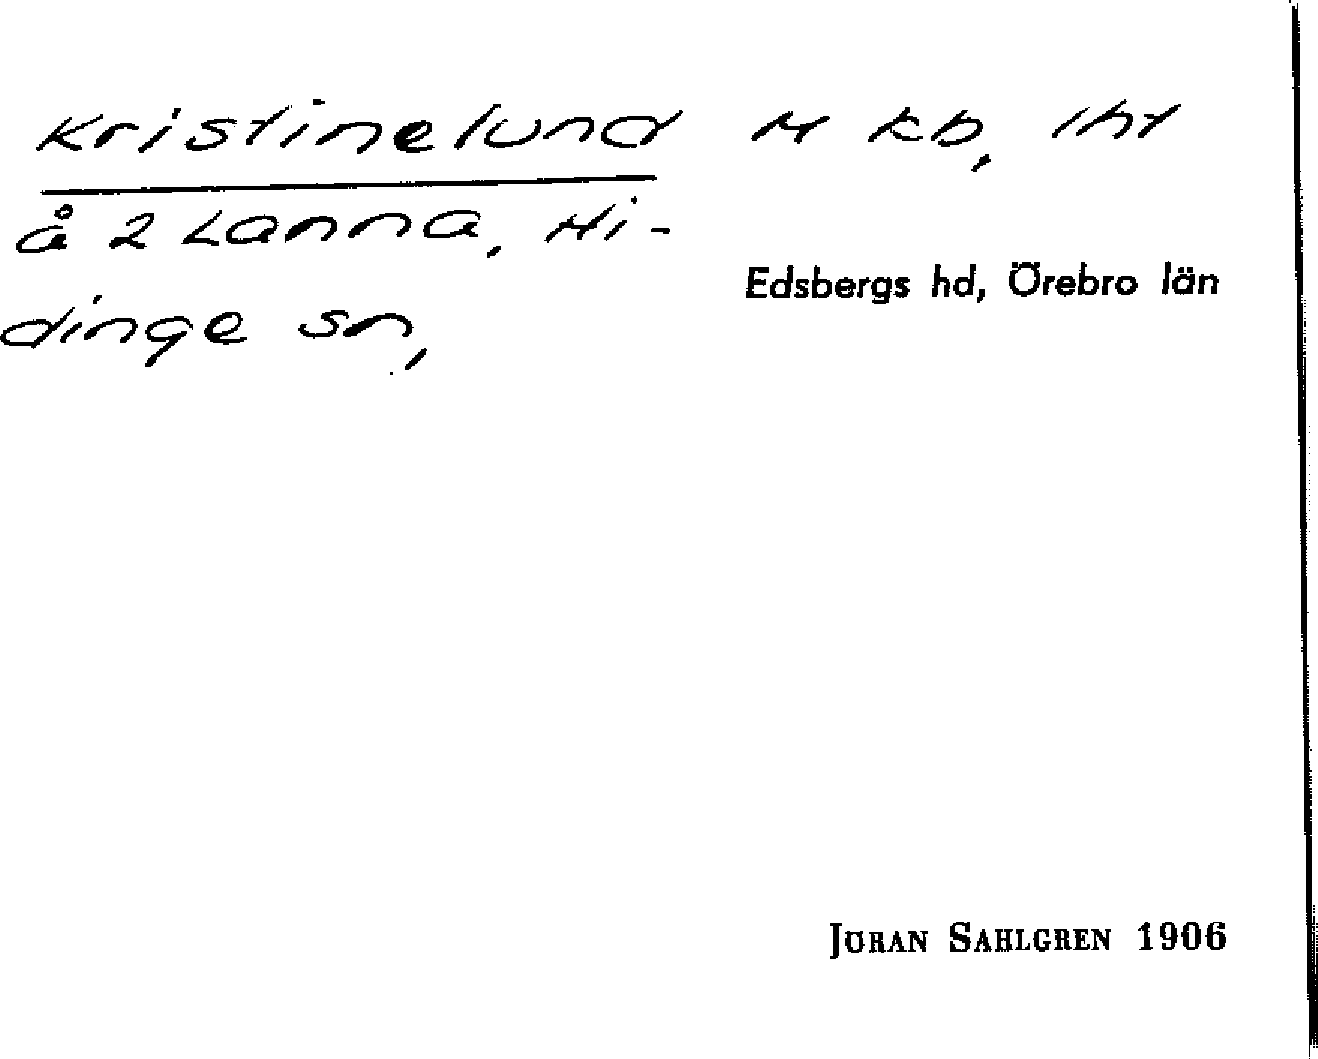 Kristinelund H kb, lht
å 2 Lanna, Hi-
Edsbergs hd, Örebro län
dinge sn,
JÖRAN SAHLGREN 1906